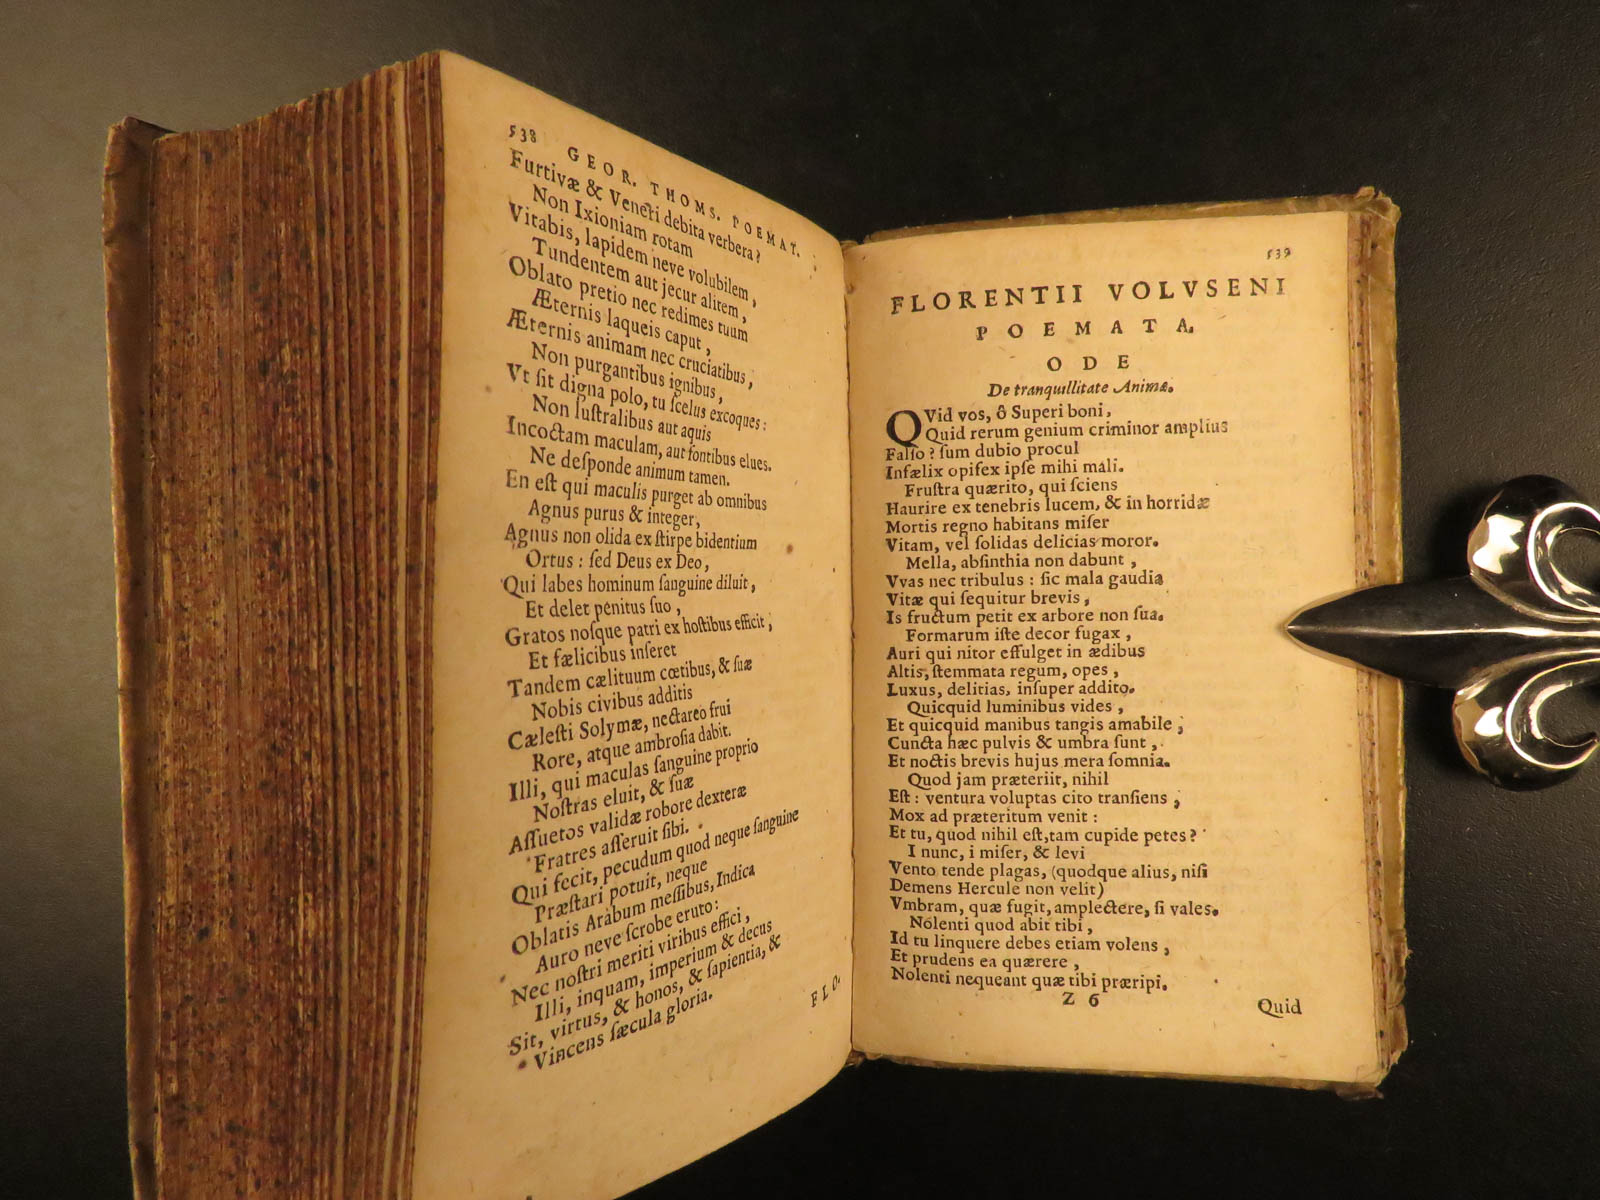 538 GEOR. THOMS. POEMAT.
Furtivæ & Veneri debita verbera?
Non Ixioniam rotam
Vitabis, lapidem neve volubilem,
Tundentem aut jecur alitem,
Oblato pretio nec redimes tuum
Æternis laqueis caput,
Æternis animam nec cruciatibus,
Non purgantibus ignibus,
Vt ſit digna polo, tu ſcelus excoques:
Non luſtralibus aut aquis
Incoctam maculam, aut fontibus elues.
Ne deſponde animum tamen.
En eſt qui maculis purget ab omnibus
Agnus purus & integer,
Agnus non olida ex ſtirpe bidentium
Ortus: ſed Deus ex Deo,
Qui labes hominum ſanguine diluit,
Et delet penitus ſuo,
Gratos noſque patri ex hoſtibus efficit,
Et fælicibus inſeret
Tandem cælituum cœtibus, & ſuæ
Nobis civibus additis
Cæleſti Solymæ, nectareo frui
Rore, atque ambroſia dabit.
Illi, qui maculas ſanguine proprio
Noſtras eluit, & ſuæ
Aſſuetos validæ robore dexteræ
Fratres aſſeruit ſibi.
Qui fecit, pecudum quod neque ſanguine
Præſtari potuit, neque
Oblatis Arabum meſſibus, Indica
Auro neve ſcrobe eruto:
Nec noſtri meriti viribus effici,
Illi, inquam, imperium & decus
Sit, virtus, & honos, & ſapientia, &
Vincens ſæcula gloria.
FLO-
539
FLORENTII VOLVSENI
POEMATA.
ODE
De tranquillitate Animæ.
QVid vos, ô Superi boni,
Quid rerum genium criminor amplius
Falſo? ſum dubio procul
Infælix opifex ipſe mihi mali.
Fruſtra quærito, qui ſciens
Haurire ex tenebris lucem, & in horridæ
Mortis regno habitans miſer
Vitam, vel ſolidas delicias moror.
Mella, abſinthia non dabunt,
Vvas nec tribulus: ſic mala gaudia
Vitæ qui ſequitur brevis,
Is fructum petit ex arbore non ſua.
Formarum iſte decor fugax,
Auri qui nitor effulget in ædibus
Altis, ſtemmata regum, opes,
Luxus, delitias, inſuper addito.
Quicquid luminibus vides,
Et quicquid manibus tangis amabile;
Cuncta hæc pulvis & umbra ſunt,
Et noctis brevis hujus mera ſomnia.
Quod jam præteriit, nihil
Eſt: ventura voluptas cito tranſiens;
Mox ad præteritum venit:
Et tu, quod nihil eſt, tam cupide petes?
I nunc, i miſer, & levi
Vento tende plagas, (quodque alius, niſi
Demens Hercule non velit)
Vmbram, quæ fugit, amplectere, ſi vales.
Nolenti quod abit tibi,
Id tu linquere debes etiam volens,
Et prudens ea quærere,
Nolenti nequeant quæ tibi præripi.
Z 6
Quid